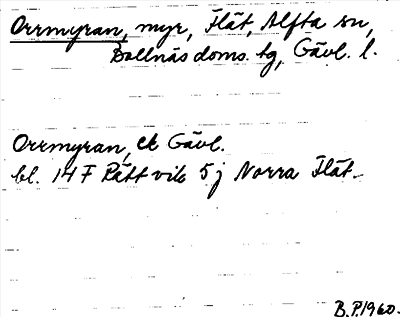 Orrmyran, myr, Flät, Alfta sn,
Bollnäs doms. tg, Gävl. l.
Orrmyran, ek Gävl.
bl. 14 F Rättvik 5 j Norra Flät.
B.P. 1960.